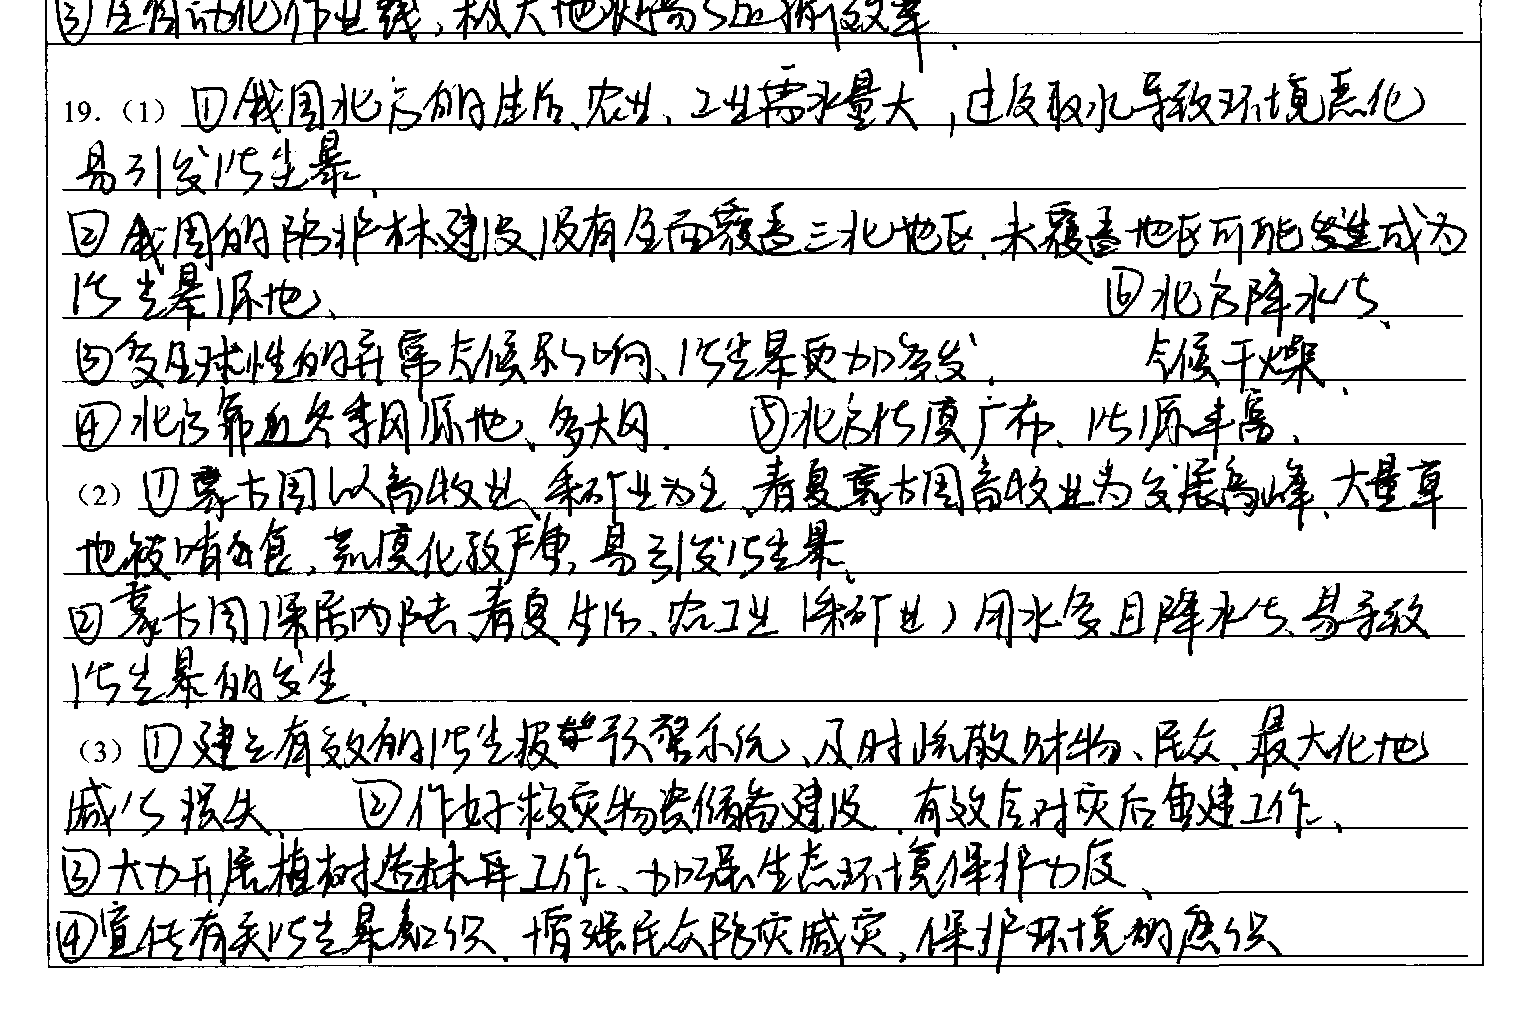 ③全自动化作业线，极大地提高
19.（1）①我国北方的生活、农业、工业需水量大，过度取水导致环境恶化
易引发沙尘暴、
②我国的防护林建设没有全面覆盖三北地区、未覆盖地区可能成为
沙尘暴源地、 ⑥北方降水少、
③受全球性的异常气候影响、沙尘暴更加多发、 气候干燥、
④北方靠近冬季风源地、多大风. ⑤北方沙漠广布、沙源丰富、
（2）①蒙古国以畜牧业、采矿业为主、春夏蒙古国畜牧业为发展高峰、大量草
地被啃食、荒漠化较严重、易引发沙尘暴、
②蒙古国深居内陆、春夏生活、农工业（采矿业）用水多且降水少、易导致
沙尘暴的发生、
（3）①建立有效的沙尘暴预警系统、及时疏散财物、民众、最大化地
减少损失、 ②作好救灾物资储备建设、有效应对灾后重建工作、
③大力开展植树造林工作、加强生态环境保护力度、
④宣传有关沙尘暴知识、增强民众防灾减灾，保护环境的意识